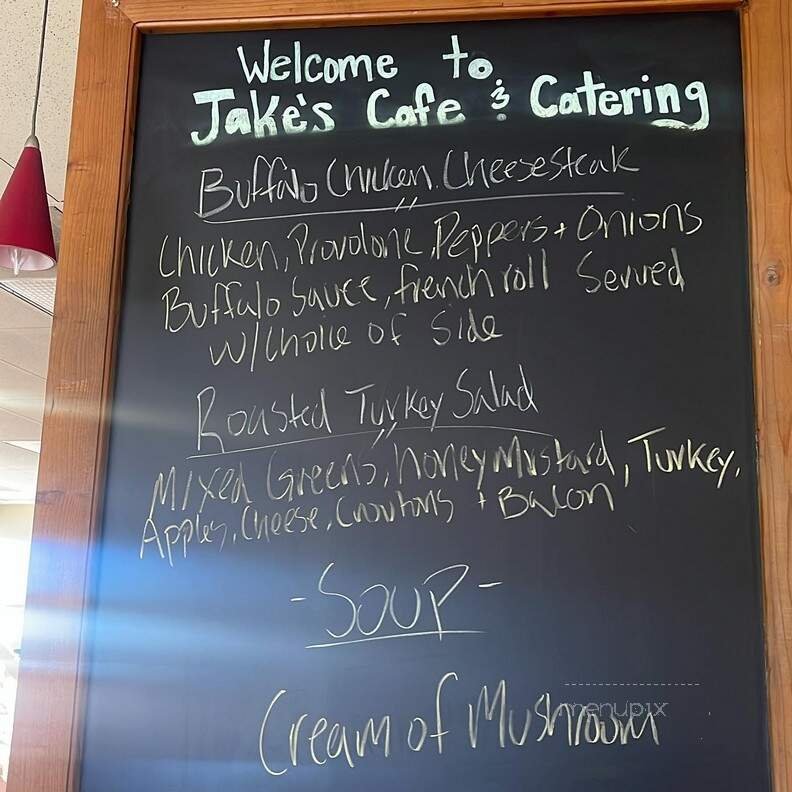 Welcome to
Jake's Cafe & Catering
Buffalo Chicken Cheesesteak
Chicken, Provolone, Peppers + Onions
Buffalo Sauce, french roll Served
w/choice of Side
Roasted Turkey Salad
Mixed Greens, honey Mustard, Turkey,
Apples, Cheese, Croutons + Bacon
- SOUP -
Cream of Mushroom
menupix